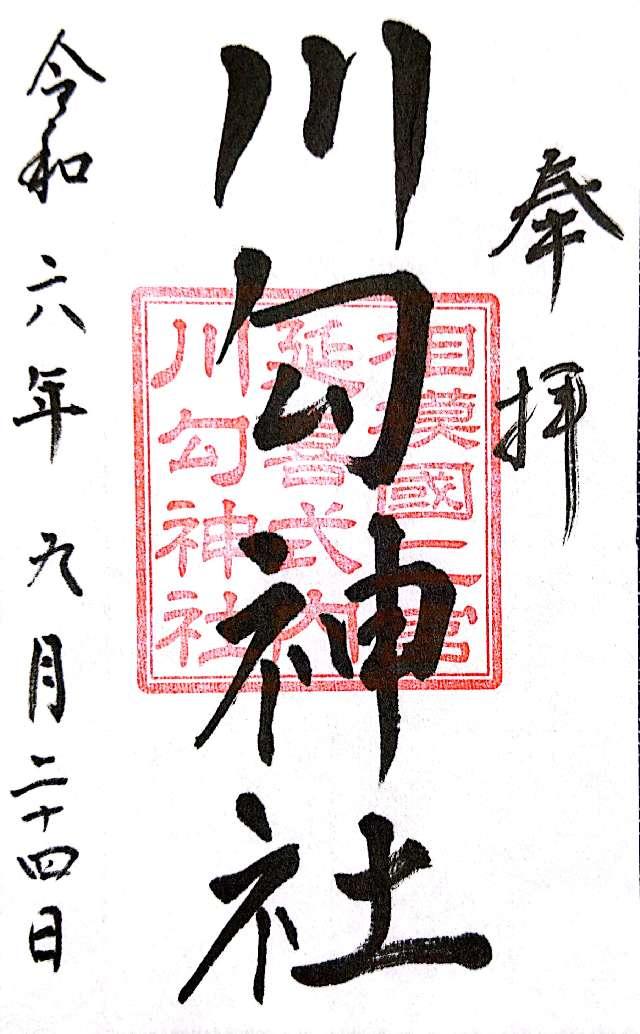 奉拝
川勾神社
相模國二宮
延喜式内
川勾神社
令和六年九月二十四日